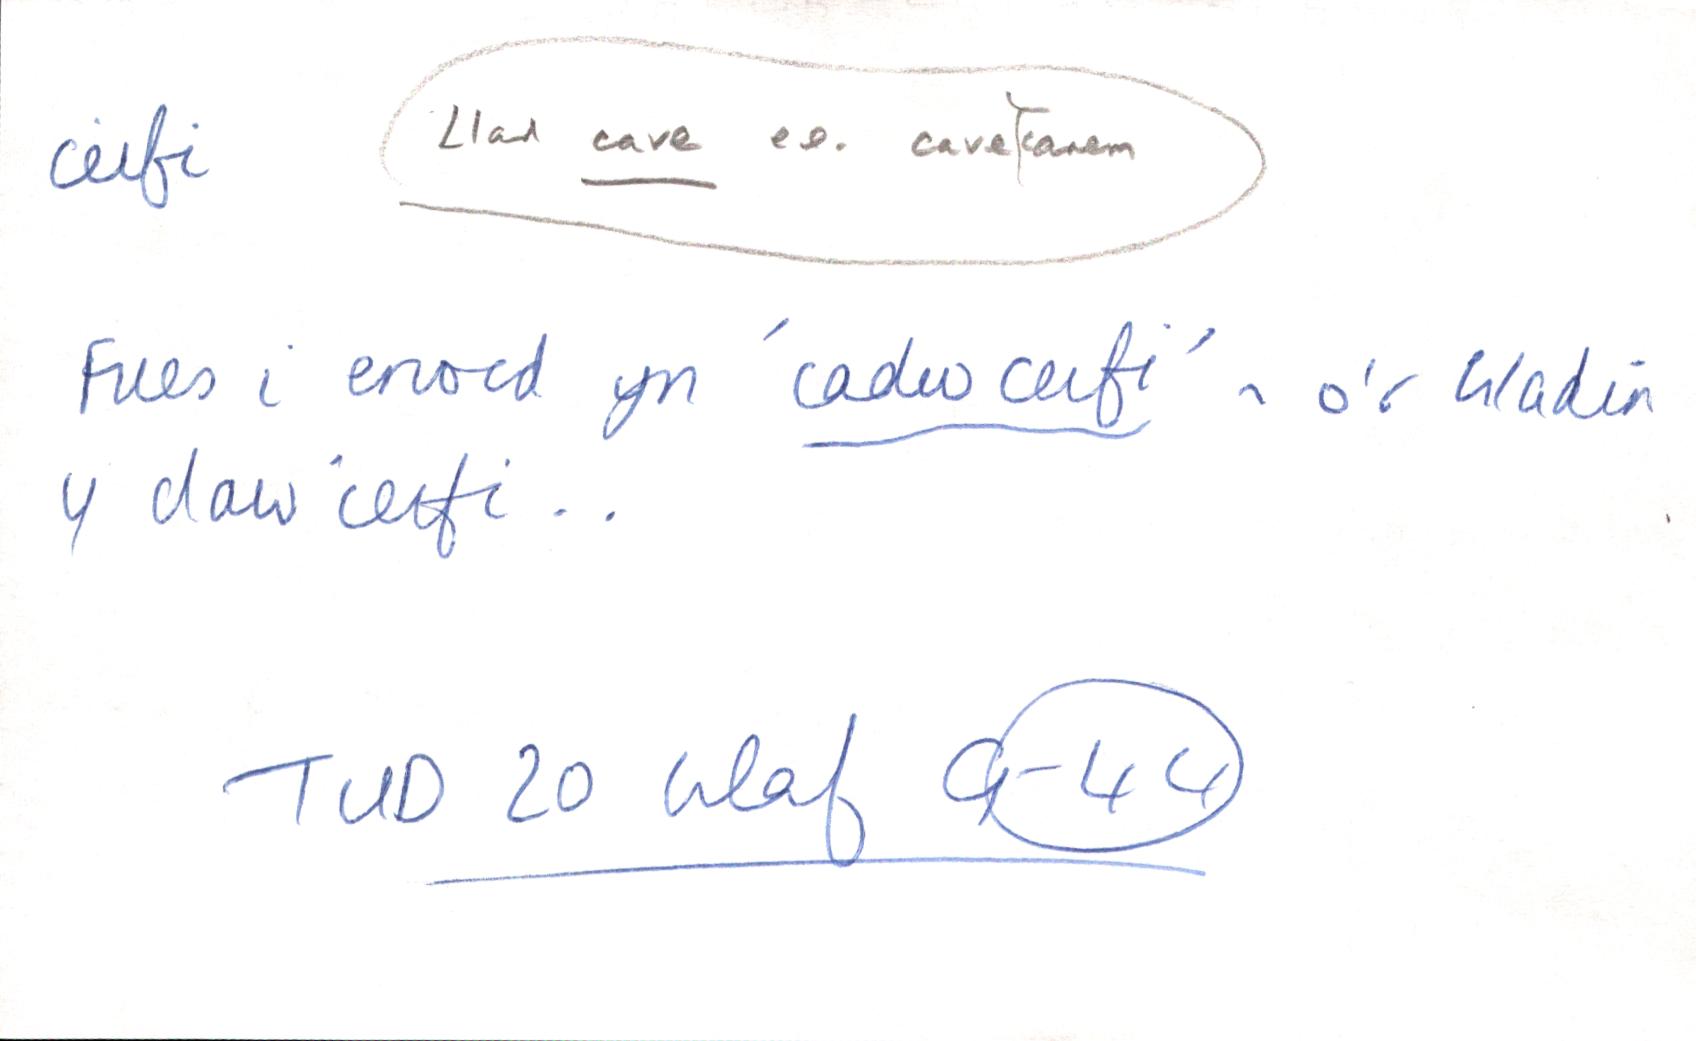 ceifi Llad cave ee. cave canem
Fues i erioed yn 'cadw ceifi' ~ o'r Lladin
y daw 'ceifi ..
TUD 20 Llaf G-44